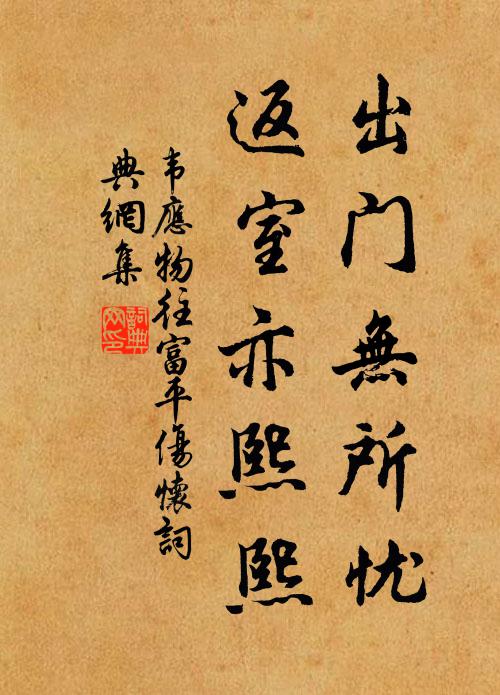 出门無所忧
返室亦熙熙
韦應物往富平傷懷詞
典網集
詞典網印